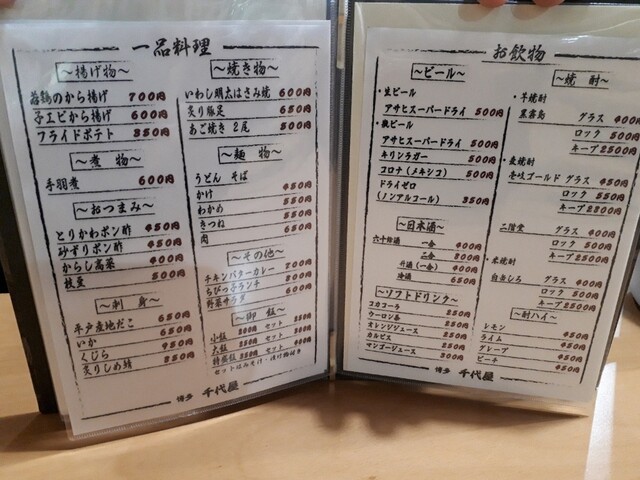 一品料理
〜揚げ物〜
若鶏のから揚げ 700円
子エビから揚げ 600円
フライドポテト 350円
〜煮物〜
手羽煮 600円
〜おつまみ〜
とりかわポン酢 450円
砂ずりポン酢 450円
からし高菜 400円
枝豆 500円
〜刺身〜
平戸産地だこ 650円
いか 650円
くじら 950円
炙りしめ鯖 650円
〜焼き物〜
いわし明太はさみ焼 600円
炙り豚足 650円
あご焼き 2尾 500円
〜麺物〜
うどん そば
かけ 450円
わかめ 550円
きつね 550円
肉 650円
〜その他〜
チキンバターカレー 700円
ちびっ子ランチ 800円
野菜サラダ 600円
〜御飯〜
小飯 200円 セット 350円
大飯 セット
特盛飯 350円 セット 400円
セットはみそ汁・漬け物付き
博多 千代屋
お飲物
〜ビール〜
・生ビール
アサヒスーパードライ 500円
・瓶ビール
アサヒスーパードライ 500円
キリンラガー 500円
コロナ(メキシコ) 500円
ドライゼロ
(ノンアルコール) 350円
〜日本酒〜
一合 400円
二合 800円
升酒(一合) 400円
冷酒 650円
〜ソフトドリンク〜
コカコーラ 250円
ウーロン茶 250円
オレンジジュース 250円
カルピス 250円
マンゴージュース 300円
〜焼酎〜
・芋焼酎
黒霧島 グラス 400円
ロック 500円
キープ 2500円
・麦焼酎
壱岐ゴールド グラス 450円
ロック 550円
キープ 2800円
二階堂 グラス 400円
ロック 500円
キープ 2500円
・米焼酎
白岳しろ グラス 400円
ロック 500円
キープ 2500円
〜酎ハイ〜
レモン 450円
ライム 450円
グレープ 450円
ピーチ 450円
博多 千代屋